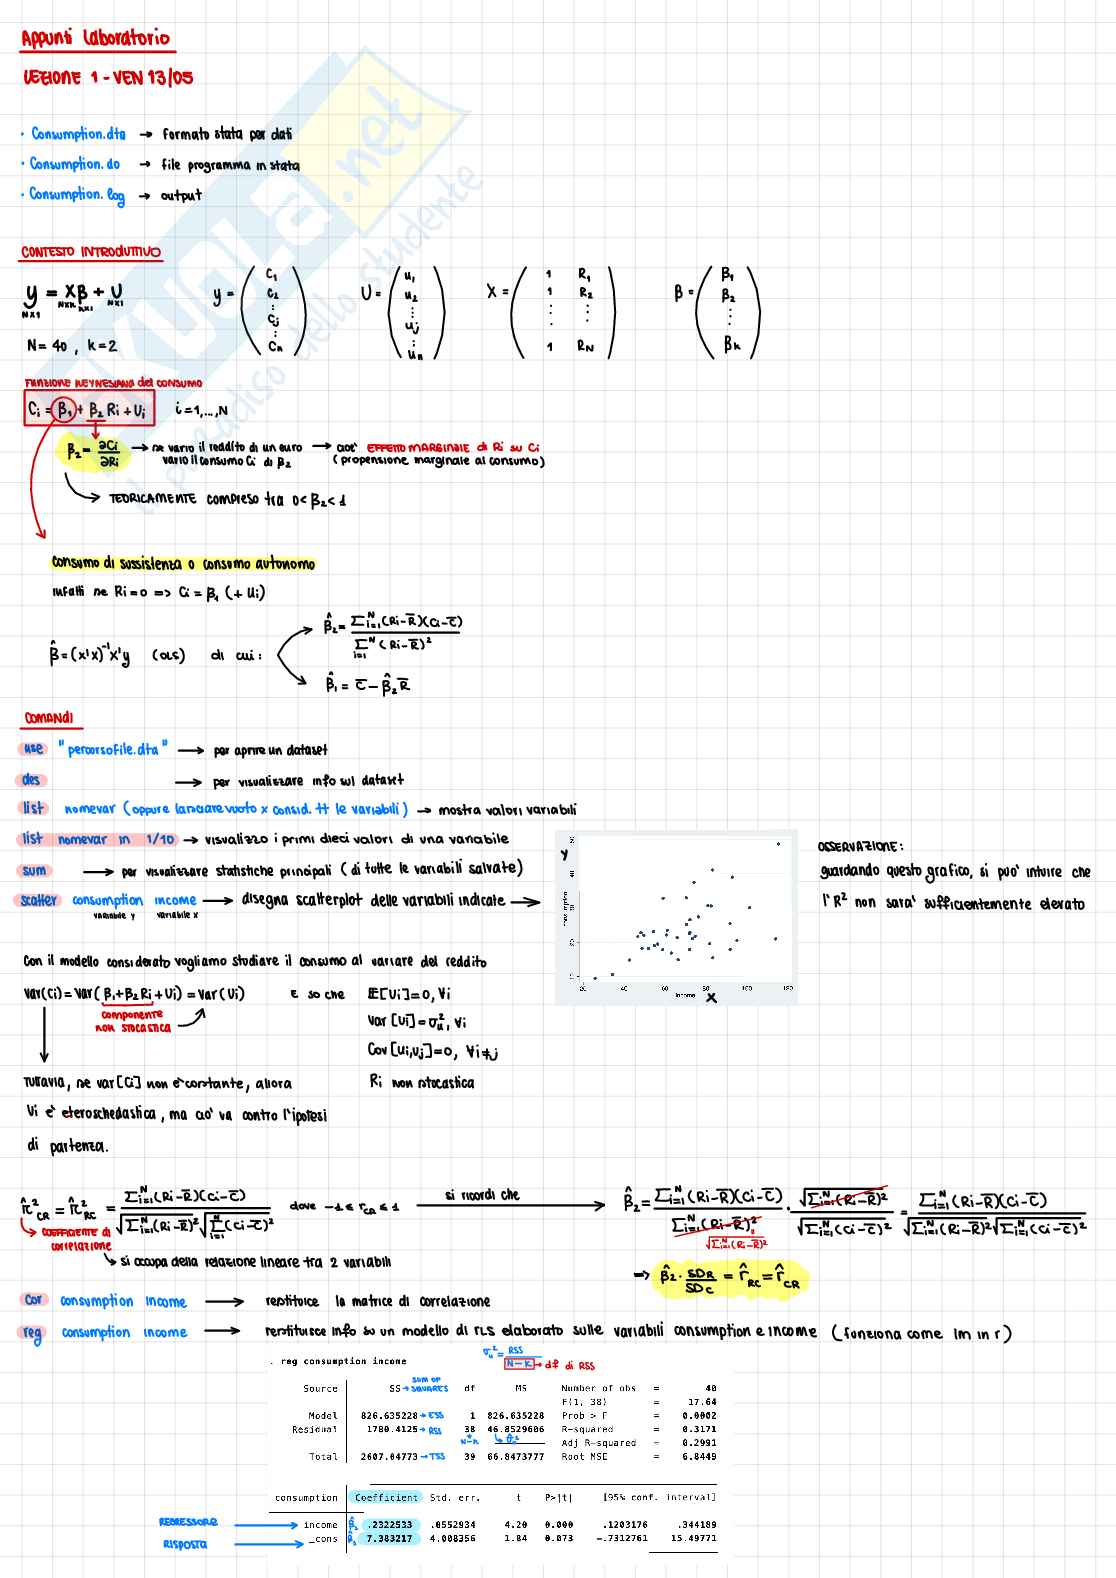 Appunti Laboratorio
LEZIONE 1 - VEN 13/05
· Consumption.dta → formato stata per dati
· Consumption.do → file programma in stata
· Consumption.log → output
SKUOLA.net
il paradiso dello studente
CONTESTO INTRODUTTIVO
y = Xβ + U
N×1 N×K K×1 N×1
y = (C₁ C₂ ⋮ Cj ⋮ Cn) U = (u₁ u₂ ⋮ uj ⋮ un) X = (1 R₁ 1 R₂ ⋮ ⋮ 1 RN) β = (β₁ β₂ ⋮ βk)
N = 40 , k = 2
FUNZIONE KEYNESIANA del CONSUMO
Ci = β₁ + β₂ Ri + Ui i = 1,...,N
β₂ = ∂Ci/∂Ri → se vario il reddito di un euro vario il consumo Ci di β₂ → cioè EFFETTO MARGINALE di Ri su Ci (propensione marginale al consumo)
→ TEORICAMENTE compreso tra 0 < β₂ < 1
consumo di sussistenza o consumo autonomo
infatti se Ri = 0 => Ci = β₁ (+ Ui)
β̂ = (x'x)⁻¹x'y (OLS) di cui :
β̂₂ = Σᵢ₌₁ᴺ (Ri - R̄)(Ci - C̄) / Σᵢ₌₁ᴺ (Ri - R̄)²
β̂₁ = C̄ - β̂₂ R̄
COMANDI
use "percorsofile.dta" → per aprire un dataset
des → per visualizzare info sul dataset
list nomevar (oppure lasciare vuoto x consid. tt le variabili) → mostra valori variabili
list nomevar in 1/10 → visualizzo i primi dieci valori di una variabile
sum → per visualizzare statistiche principali (di tutte le variabili salvate)
scatter consumption income → disegna scatterplot delle variabili indicate →
variabile y variabile x
y
consumption
20 40 60 80 100 120
income
X
OSSERVAZIONE:
guardando questo grafico, si puo' intuire che
l'R² non sara' sufficientemente elevato
Con il modello considerato vogliamo studiare il consumo al variare del reddito
Var(Ci) = Var(β₁+β₂Ri + Ui) = Var(Ui) E so che E[Ui] = 0, ∀i
componente non stocastica
Var[Ui] = σ²u, ∀i
Cov[ui,uj] = 0, ∀i≠j
Ri non stocastica
Tuttavia, se var[Ci] non e' costante, allora
Ui e' eteroschedastica, ma cio' va contro l'ipotesi
di partenza.
r̂²CR = r̂²RC = Σᵢ₌₁ᴺ (Ri-R̄)(Ci-C̄) / √Σᵢ₌₁ᴺ (Ri-R̄)² √Σᵢ₌₁ᴺ (Ci-C̄)² dove -1 ≤ rCR ≤ 1 si ricordi che → β̂₂ = Σᵢ₌₁ᴺ (Ri-R̄)(Ci-C̄) / Σᵢ₌₁ᴺ (Ri-R̄)² · √Σᵢ₌₁ᴺ (Ri-R̄)² / √Σᵢ₌₁ᴺ (Ci-C̄)² = Σᵢ₌₁ᴺ (Ri-R̄)(Ci-C̄) / √Σᵢ₌₁ᴺ (Ri-R̄)² √Σᵢ₌₁ᴺ (Ci-C̄)²
√Σᵢ₌₁ᴺ (Ri-R̄)²
COEFFICIENTE di correlazione
→ si occupa della relazione lineare tra 2 variabili
=> β̂₂ · SDR/SDC = r̂RC = r̂CR
cor consumption income → restituice la matrice di correlazione
reg consumption income → restituisce info su un modello di RLS elaborato sulle variabili consumption e income (funziona come lm in r)
σ²u = RSS / N-K → df di RSS
. reg consumption income
Source SS → SUM OF SQUARES df MS Number of obs = 40
F(1, 38) = 17.64
Model 826.635228 → ESS 1 826.635228 Prob > F = 0.0002
Residual 1780.4125 → RSS 38 46.8529606 R-squared = 0.3171
N-K σ̂²u Adj R-squared = 0.2991
Total 2607.04773 → TSS 39 66.8473777 Root MSE = 6.8449
consumption Coefficient Std. err. t P>|t| [95% conf. interval]
REGRESSORE → income β̂₂ .2322533 .0552934 4.20 0.000 .1203176 .344189
RISPOSTA → _cons β̂₁ 7.383217 4.008356 1.84 0.073 -.7312761 15.49771